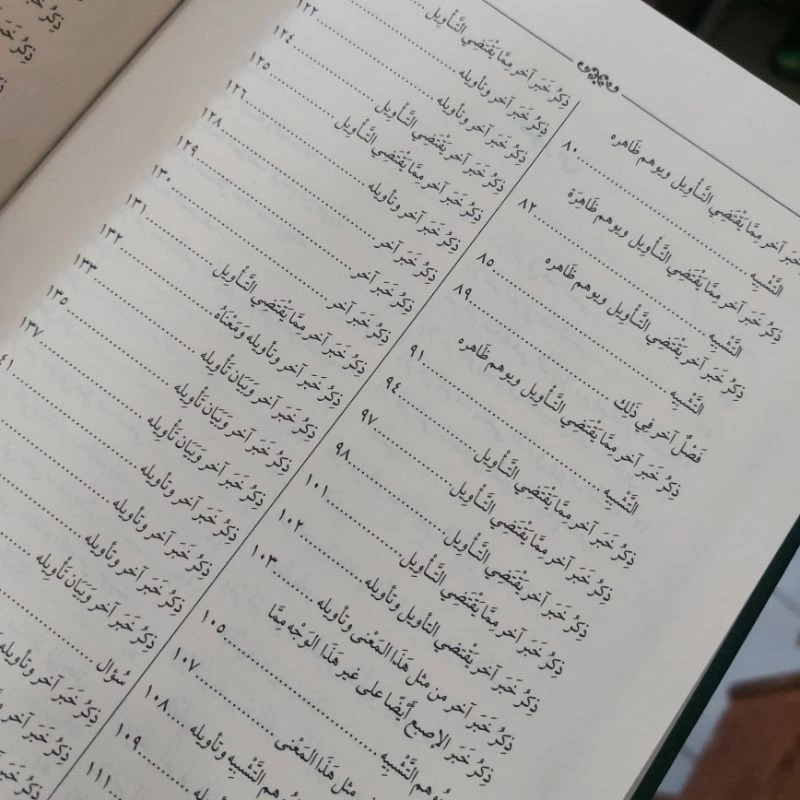 خَبَر آخر مِمَّا يَقْتَضِي التَّأْوِيل ويوهم ظَاهره
التَّشْبِيه ٨٠
ذِكْرُ خَبَر آخر مِمَّا يَقْتَضِي التَّأْوِيل ويوهم ظَاهِرَة
التَّشْبِيه ٨٢
ذِكْرُ خَبَر آخر يَقْتَضِي التَّأْوِيل ويوهم ظَاهره
التَّشْبِيه ٨٥
فَصْلٌ آخر فِي ذَلك ٨٩
ذِكْرُ خَبَر آخر مِمَّا يَقْتَضِي التَّأْوِيل ويوهم ظَاهره
التَّشْبِيه ٩١
ذِكْرُ خَبَر آخر مِمَّا يَقْتَضِي التَّأْوِيل ٩٤
ذِكْرُ خَبَر آخر مِمَّا يَقْتَضِي التَّأْوِيل ٩٧
ذِكْرُ خَبَر آخر يَقْتَضِي التَّأْوِيل ٩٨
ذِكْرُ خَبَر آخر مِمَّا يَقْتَضِي التَّأْوِيل ١٠١
ذِكْرُ خَبَر آخر يَقْتَضِي التأويل وتأويله ١٠٢
ذِكْرُ خَبَر آخر من مثل هَذَا المَعْنى وتأويله ١٠٣
ذِكْرُ خَبَر الإصبع أَيْضًا على غير هَذَا الوَجْه مِمَّا
التَّشْبِيه ١٠٥
مثل هَذَا المَعْنى ١٠٧
التَّشْبِيه وتأويله ١٠٨
١٠٩
١١١
ذِكْرُ خَبَر آخر مِمَّا يَقْتَضِي التَّأْوِيل ١٢٢
ذِكْرُ خَبَر آخر وتأويله ١٢٤
ذِكْرُ خَبَر آخر يَقْتَضِي التَّأْوِيل ١٢٥
ذِكْرُ خَبَر آخر مِمَّا يَقْتَضِي التَّأْوِيل ١٢٦
ذِكْرُ خَبَر آخر وتأويله ١٢٨
ذِكْرُ خَبَر آخر ١٢٩
ذِكْرُ خَبَر آخر ١٣٠
ذِكْرُ خَبَر آخر ١٣١
ذِكْرُ خَبَر آخر مِمَّا يَقْتَضِي التَّأْوِيل ١٣٢
ذِكْرُ خَبَر آخر وتأويله وَمَعْنَاهُ ١٣٣
ذِكْرُ خَبَر آخر وَبَيَان تَأْوِيله ١٣٥
ذِكْرُ خَبَر آخر وَبَيَان تَأْوِيله ١٣٧
ذِكْرُ خَبَر آخر وَبَيَان تَأْوِيله
ذِكْرُ خَبَر آخر وتأويله
ذِكْرُ خَبَر آخر وتأويله
ذِكْرُ خَبَر آخر وتأويله
ذِكْرُ خَبَر آخر وَبَيَان تَأْوِيله
سُؤال
ذِكْرُ خَبَر آخر وتأويله
ذِكْرُ خَبَر آخر
ذِكْرُ خَبَر آخر
ذِكْرُ خَبَر